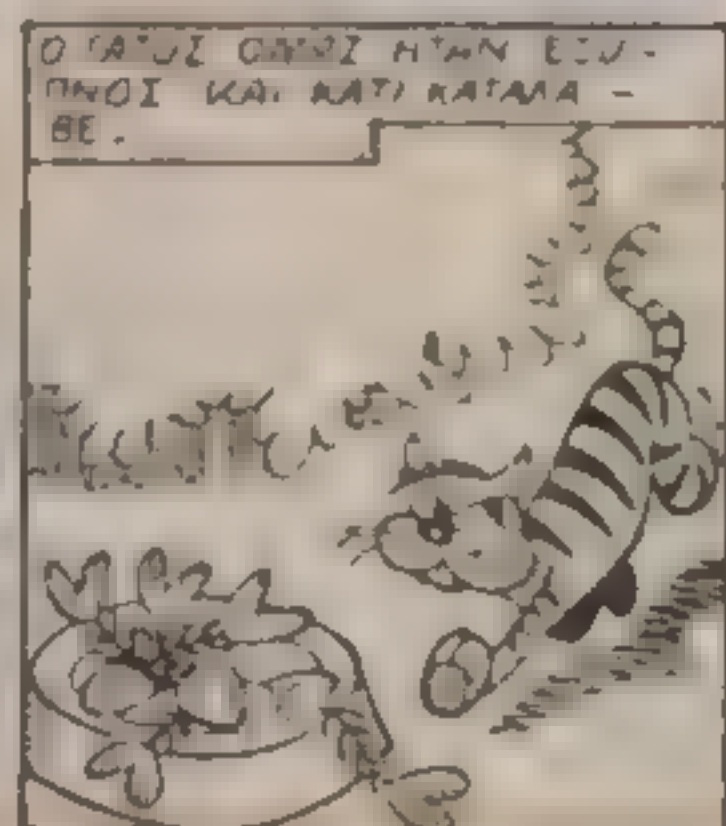 Ο ΓΑΤΟΣ ΟΜΩΣ ΗΤΑΝ ΕΞΥ-
ΠΝΟΣ ΚΑΙ ΚΑΤΙ ΚΑΤΑΛΑ-
ΒΕ.